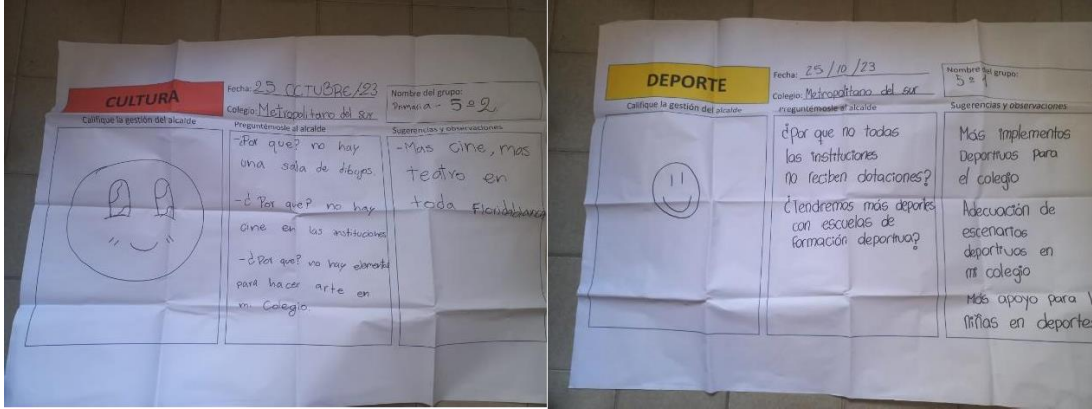 CULTURA
Fecha: 25 OCTUBRE/23
Colegio: Metropolitano del sur
Nombre del grupo:
Primaria - 5º2
Califique la gestión del alcalde
Preguntémosle al alcalde
Sugerencias y observaciones
-Por que? no hay
una sala de dibujos.
-¿Por que? no hay
cine en las instituciones
-¿Por que? no hay elementos
para hacer arte en
mi Colegio.
-Mas cine, mas
teatro en
toda Floridablanca
DEPORTE
Fecha: 25/10/23
Colegio: Metropolitano del sur
Nombre del grupo:
5º1
Califique la gestión del alcalde
Preguntémosle al alcalde
Sugerencias y observaciones
¿Por que no todas
las instituciones
no reciben dotaciones?
¿Tendremos más deportes
con escuelas de
formación deportiva?
Más implementos
Deportivos para
el colegio
Adecuación de
escenarios
deportivos en
mi colegio
Más apoyo para
niñas en deporte